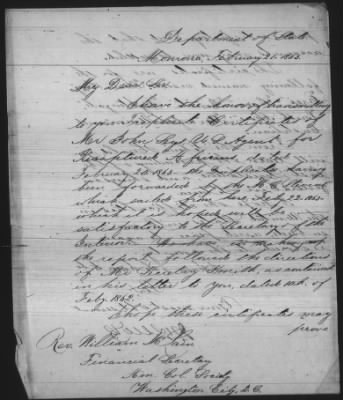 Department of State
Monrovia, February 25. 1863.
My Dear Sir
I have the honor of transmitting
to you Triplicate Certificates of
Mr John Seys U S Agent for
Recaptured Africans dated
February 20. 1863. the Duplicates having
been forwarded by the M. C. Stevens
which sailed from here Feby 22. 1863.
which it is hoped will be
satisfactory to the Secretary of the
Interior. in making up
the report, followed the directions
of Mr Smith, as contained
in his letter to you, dated 10th. of
Feby. 1862.
I hope these certificates may
prove
Rev. William McLain
Financial Secretary
Am. Col. Society
Washington City, D. C.